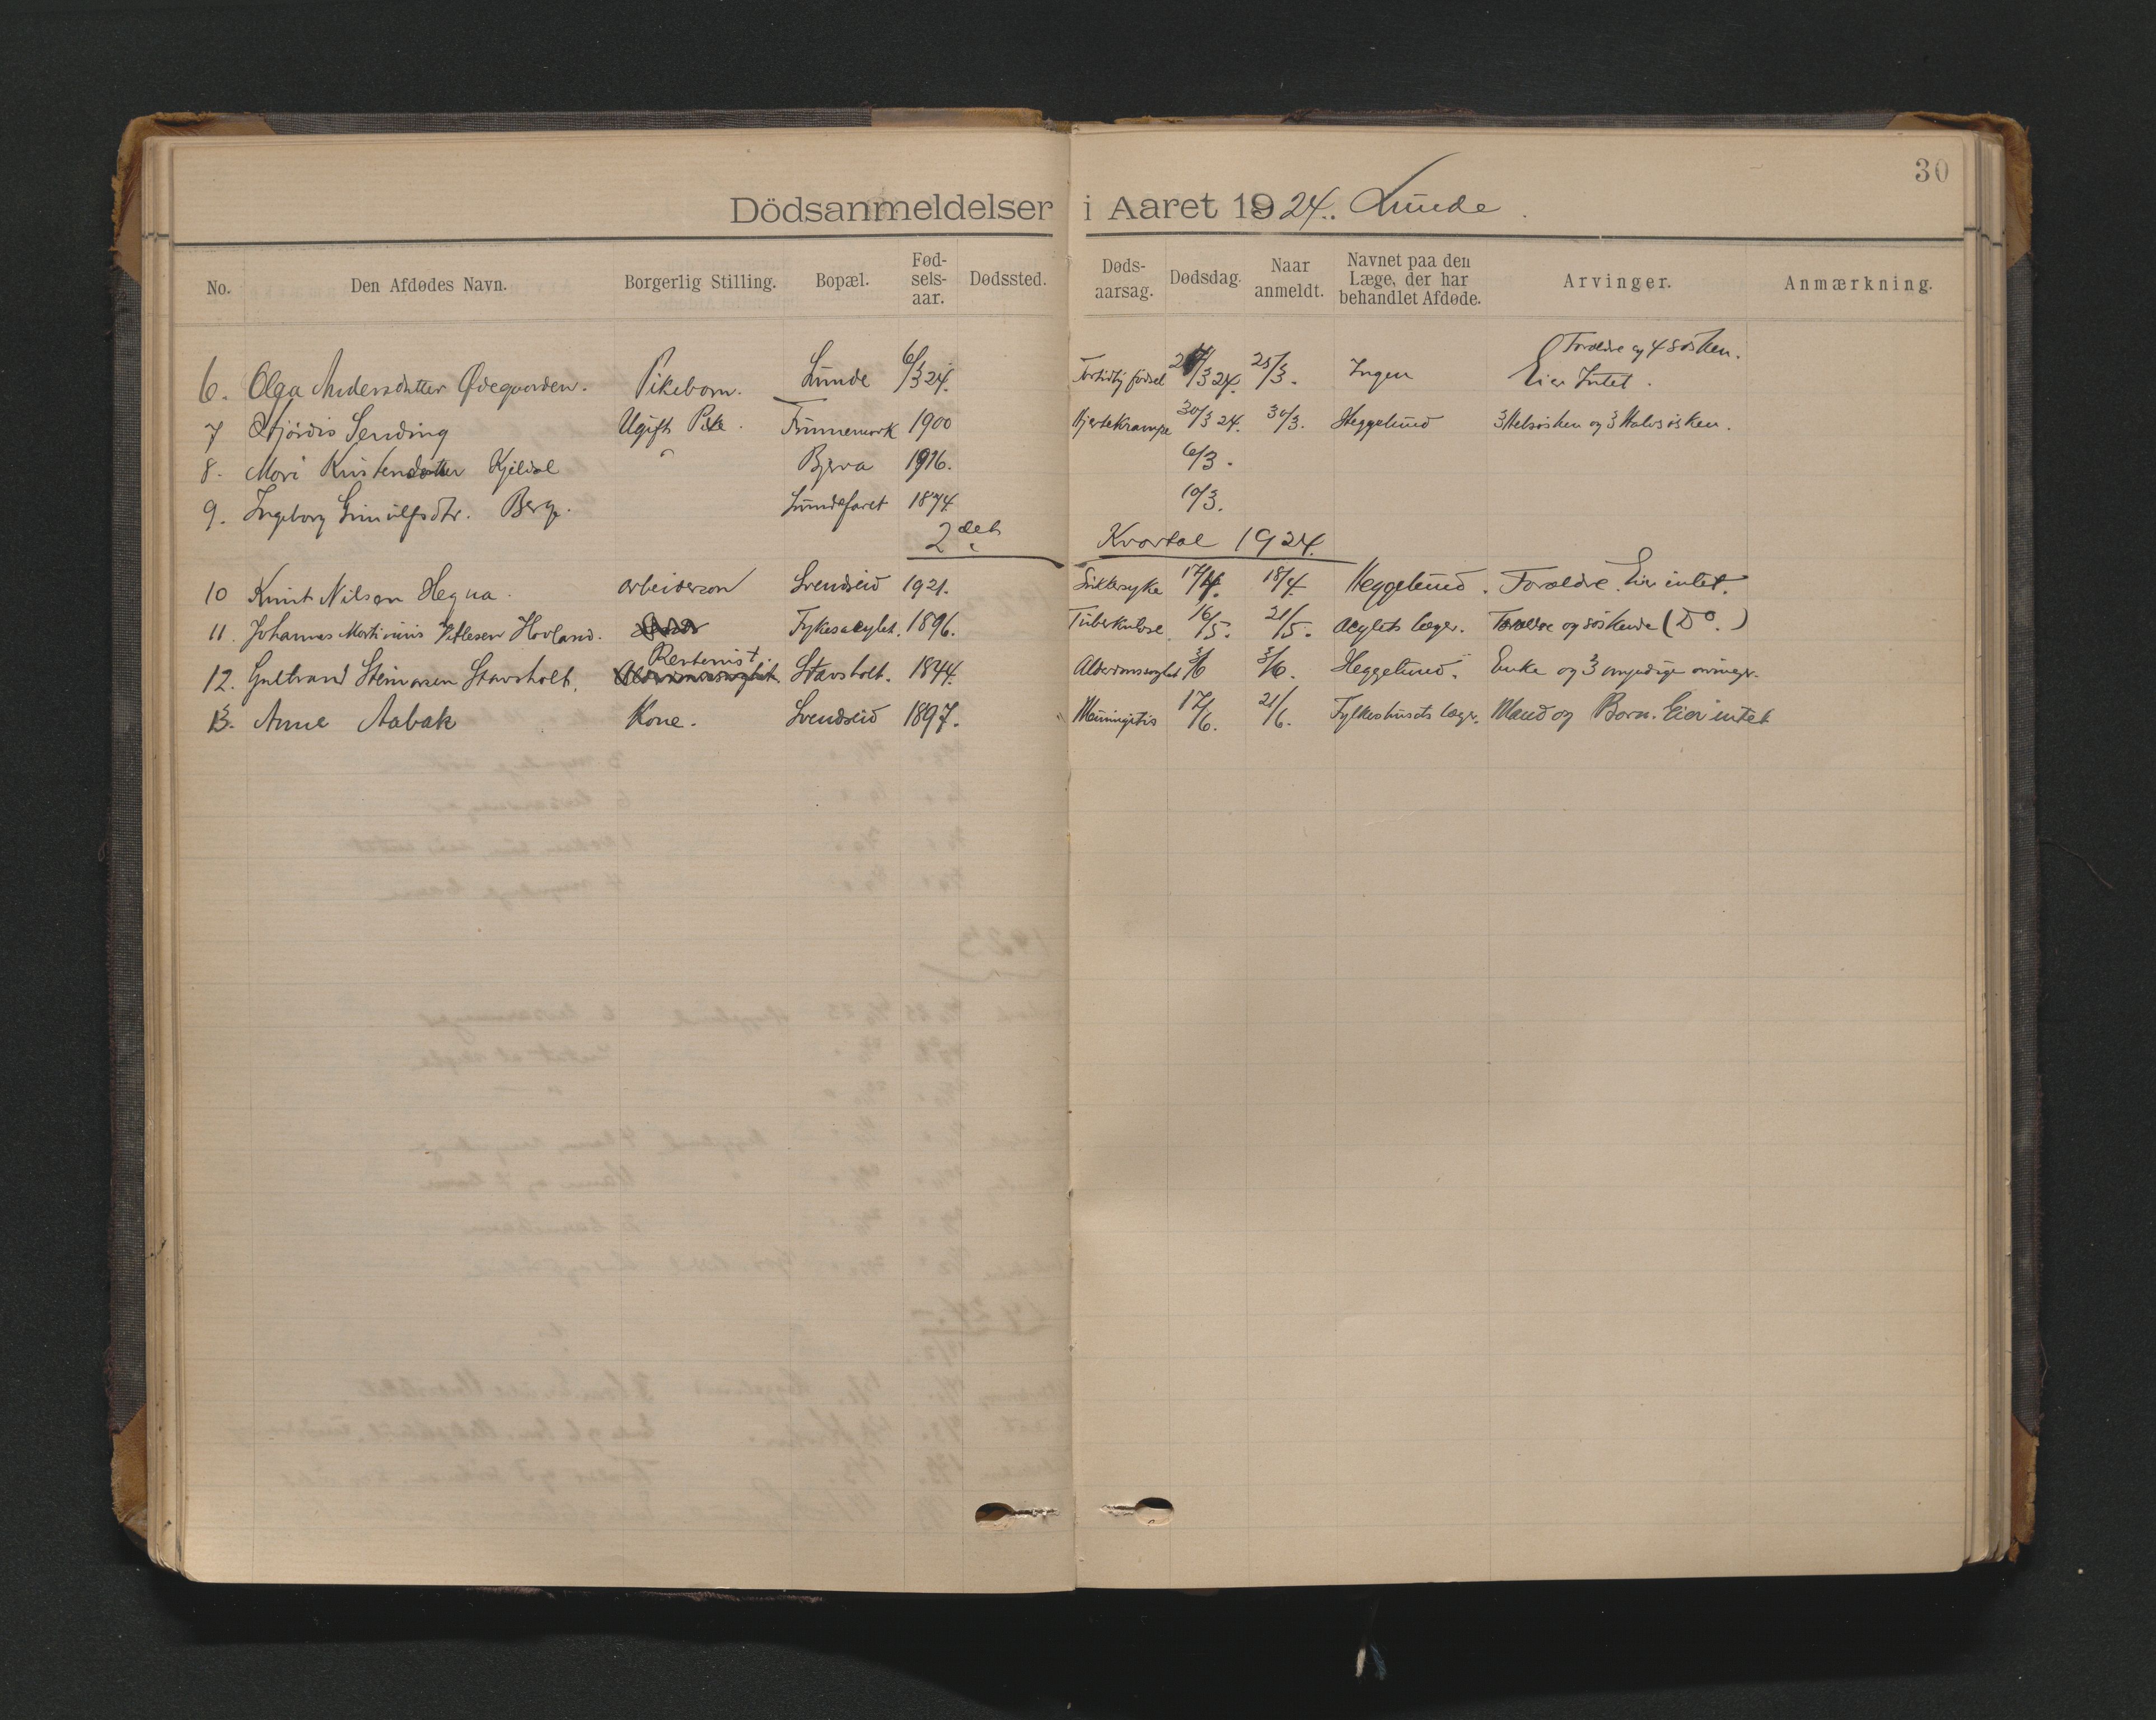 30
Dödsanmeldelser i Aaret 1924. Lunde.
No. Den Afdødes Navn. Borgerlig Stilling. Bopæl. Fødselsaar. Dødssted. Dødsaarsag. Dødsdag. Naar anmeldt. Navnet paa den Læge, der har behandlet Afdøde. Arvinger. Anmærkning.
Forældre og 4 søsken.
6. Olga Andersdatter Ødegaarden. Pikebarn. Lunde 6/3 24. Fortidlig fødsel /3 24. 25/3. Ingen Eier Intet.
7 Hjördis Sending Ugift Pike. Finnemork 1900 Hjertekrampe 30/3 24. 30/3. Heggelund 3 Helsøsken og 3 Halvsøsken.
8. Mari Kristensdatter Kjeldal " Bjerva 1916. 6/3.
9. Ingeborg Gunulfsdtr. Berge. Lundefaret 1874. 10/3.
2det Kvartal 1924.
10 Knut Nilsen Hegna. arbeiderson Svendseid 1921. Sukkersyke 17/4. 18/4. Heggelund. Forældre. Eier intet.
11. Johannes Martinius Vetlesen Hovland. Fylkesasylet. 1896. Tuberkulose 16/5. 21/5. Asylets læge. Forældre og søskende (Do.)
Rentenist.
12. Gulbrand Steinarsen Stavsholt. Stavsholt. 1844. Alderdomssvaghet 3/6 3/6. Heggelund. Enke og 3 myndige arvinger.
13. Anne Aabak Kone. Svendseid 1897. Meningitis 17/6. 21/6. Fylkeshusets læge. Mand og Barn. Eier intet